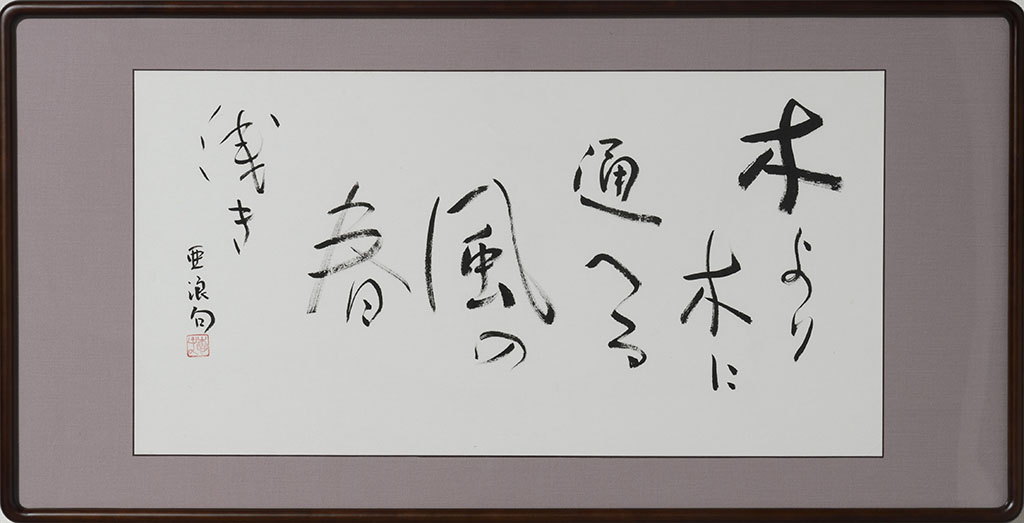 木より
木に
通へる
風の
春
浅き
亜浪句